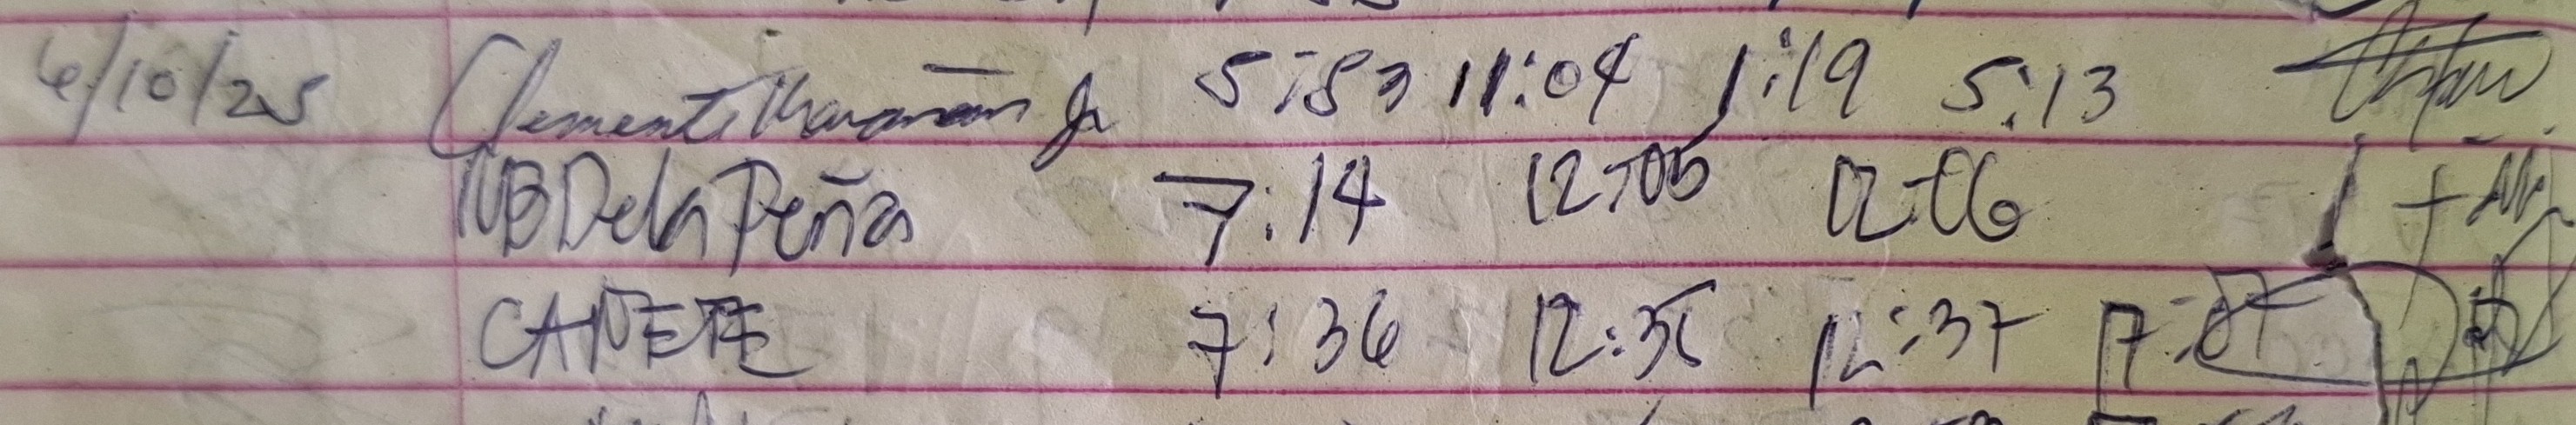 6/10/25 Clemente Jr 5:53 11:04 1:19 5:13
NB Dela Peña 7:14 12:05 12:06
CAÑETE 7:36 12:35 12:37 17:07